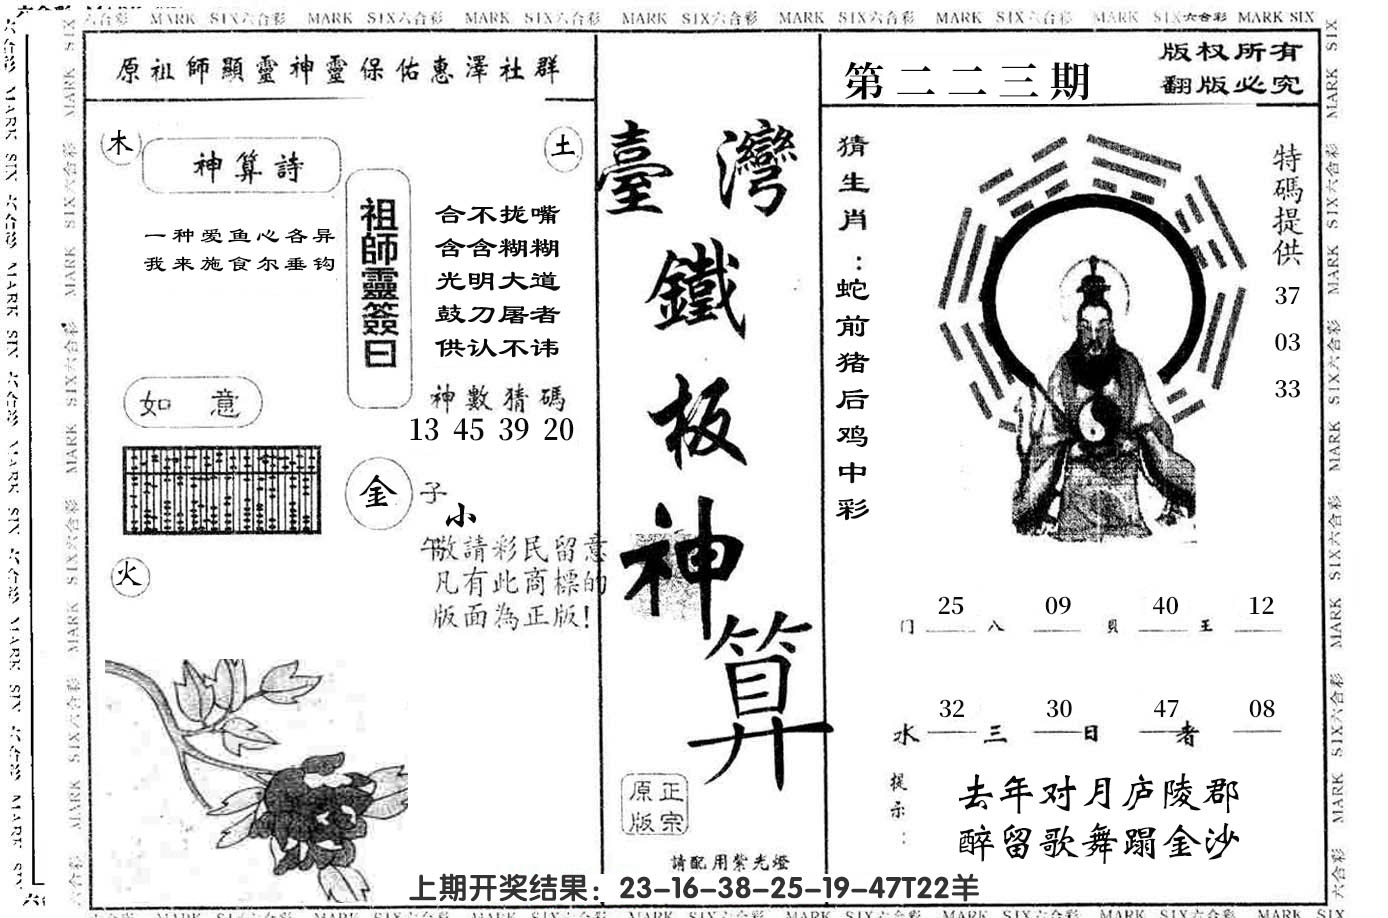 MARK SIX六合彩 MARK SIX六合彩 MARK SIX六合彩 MARK SIX六合彩 MARK SIX六合彩 MARK SIX六合彩 MARK SIX六合彩 MARK SIX
原祖師顯靈神靈保佑惠澤社群
木
神算詩
土
一种爱鱼心各异
我来施食尔垂钧
祖師靈簽曰
合不拢嘴
含含糊糊
光明大道
鼓刀屠者
供认不讳
如意
神數猜碼
13 45 39 20
金
子
小
午
敬請彩民留意
凡有此商標的
版面為正版!
火
臺灣
鐵
板
神
算
原正
版宗
請配用紫光燈
第二二三期
版权所有
翻版必究
猜生肖:蛇前猪后鸡中彩
特碼提供
37
03
33
25 09 40 12
门 八 貝 王
32 30 47 08
水 三 日 者
提示:
去年对月庐陵郡
醉留歌舞蹋金沙
上期开奖结果：23-16-38-25-19-47T22羊